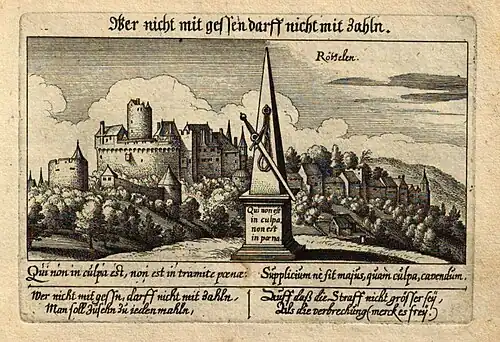 Wer nicht mit gessen darff nicht mit Zahln.
Rötelen.
Qui non est
in culpa,
non est
in pæna
Qui non in culpa est, non est in tramite pœnæ:
Supplicium ne sit majus, quam culpa, cavendum.
Wer nicht mit gessn, darff nicht mit Zahln,
Man soll Zusehn Zu ieden mahln,
Auff daß die Straff nicht grösser sey,
Als die verbrechung (merckes frey.)